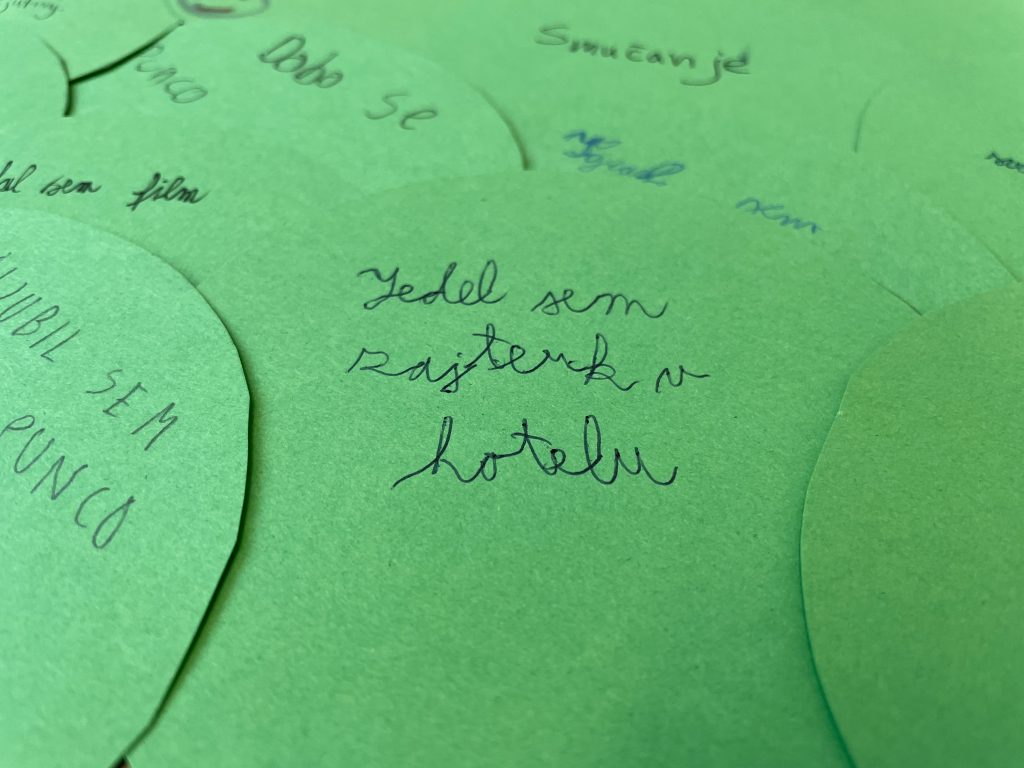 PUNCO
Dobo se
Smučanje
sem
sem film
Jedel sem
zajterk v
hotelu
SEM
PUNCO